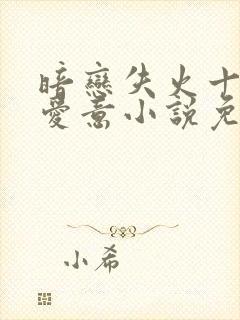 暗戀失火十
愛意小說免
小希